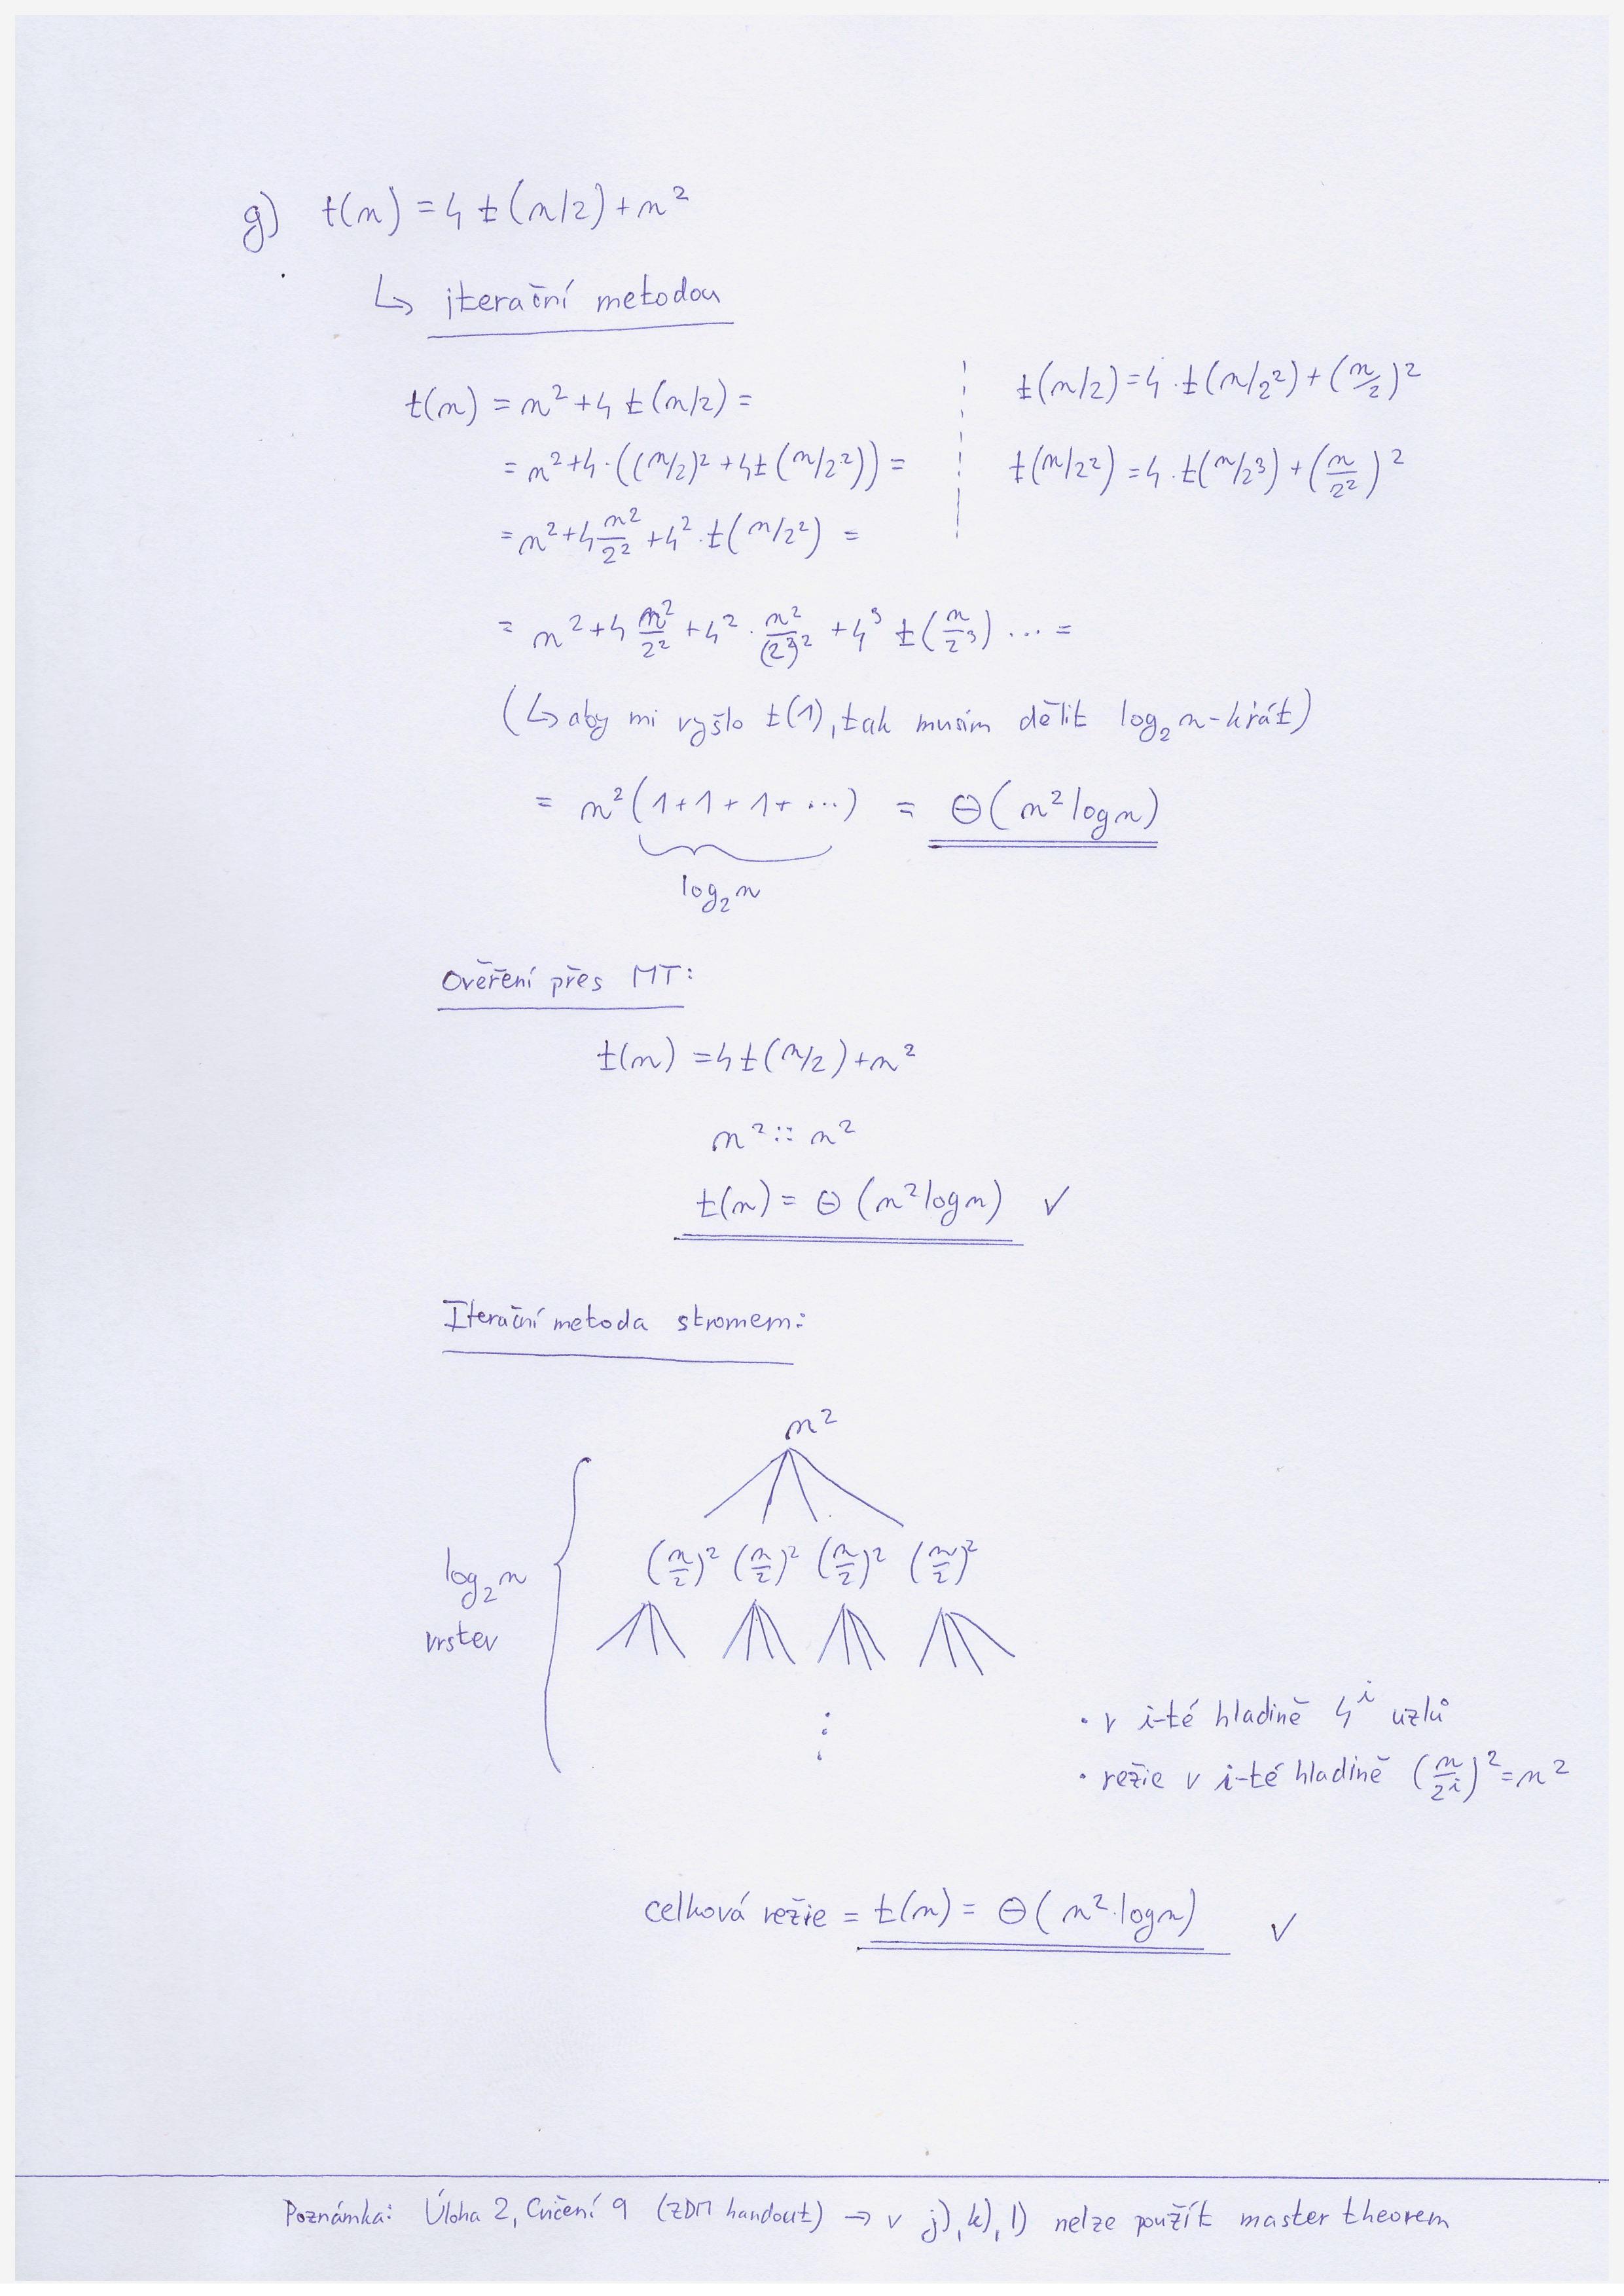 g) t(n) = 4 t(n/2) + n²
↳ iterační metodou
t(n) = n² + 4 t(n/2) =
= n² + 4 · ((n/2)² + 4t(n/2²)) =
= n² + 4 n²/2² + 4² · t(n/2²) =
t(n/2) = 4 · t(n/2²) + (n/2)²
t(n/2²) = 4 · t(n/2³) + (n/2²)²
= n² + 4 n²/2² + 4² · n²/(2²)² + 4³ t(n/2³) ... =
(↳ aby mi vyšlo t(1), tak musím dělit log₂n-krát)
= n² (1 + 1 + 1 + ...) = Θ(n² log n)
log₂n
Ověření přes MT:
t(n) = 4t(n/2) + n²
n² :: n²
t(n) = Θ(n² log n) ✓
Iterační metoda stromem:
n²
(n/2)² (n/2)² (n/2)² (n/2)²
log₂n
vrstev
⋮
• v i-té hladině 4ⁱ uzlů
• režie v i-té hladině (n/2ⁱ)² = n²
celková režie = t(n) = Θ(n² · log n) ✓
Poznámka: Úloha 2, Cvičení 9 (ZDM handout) → v j), k), l) nelze použít master theorem